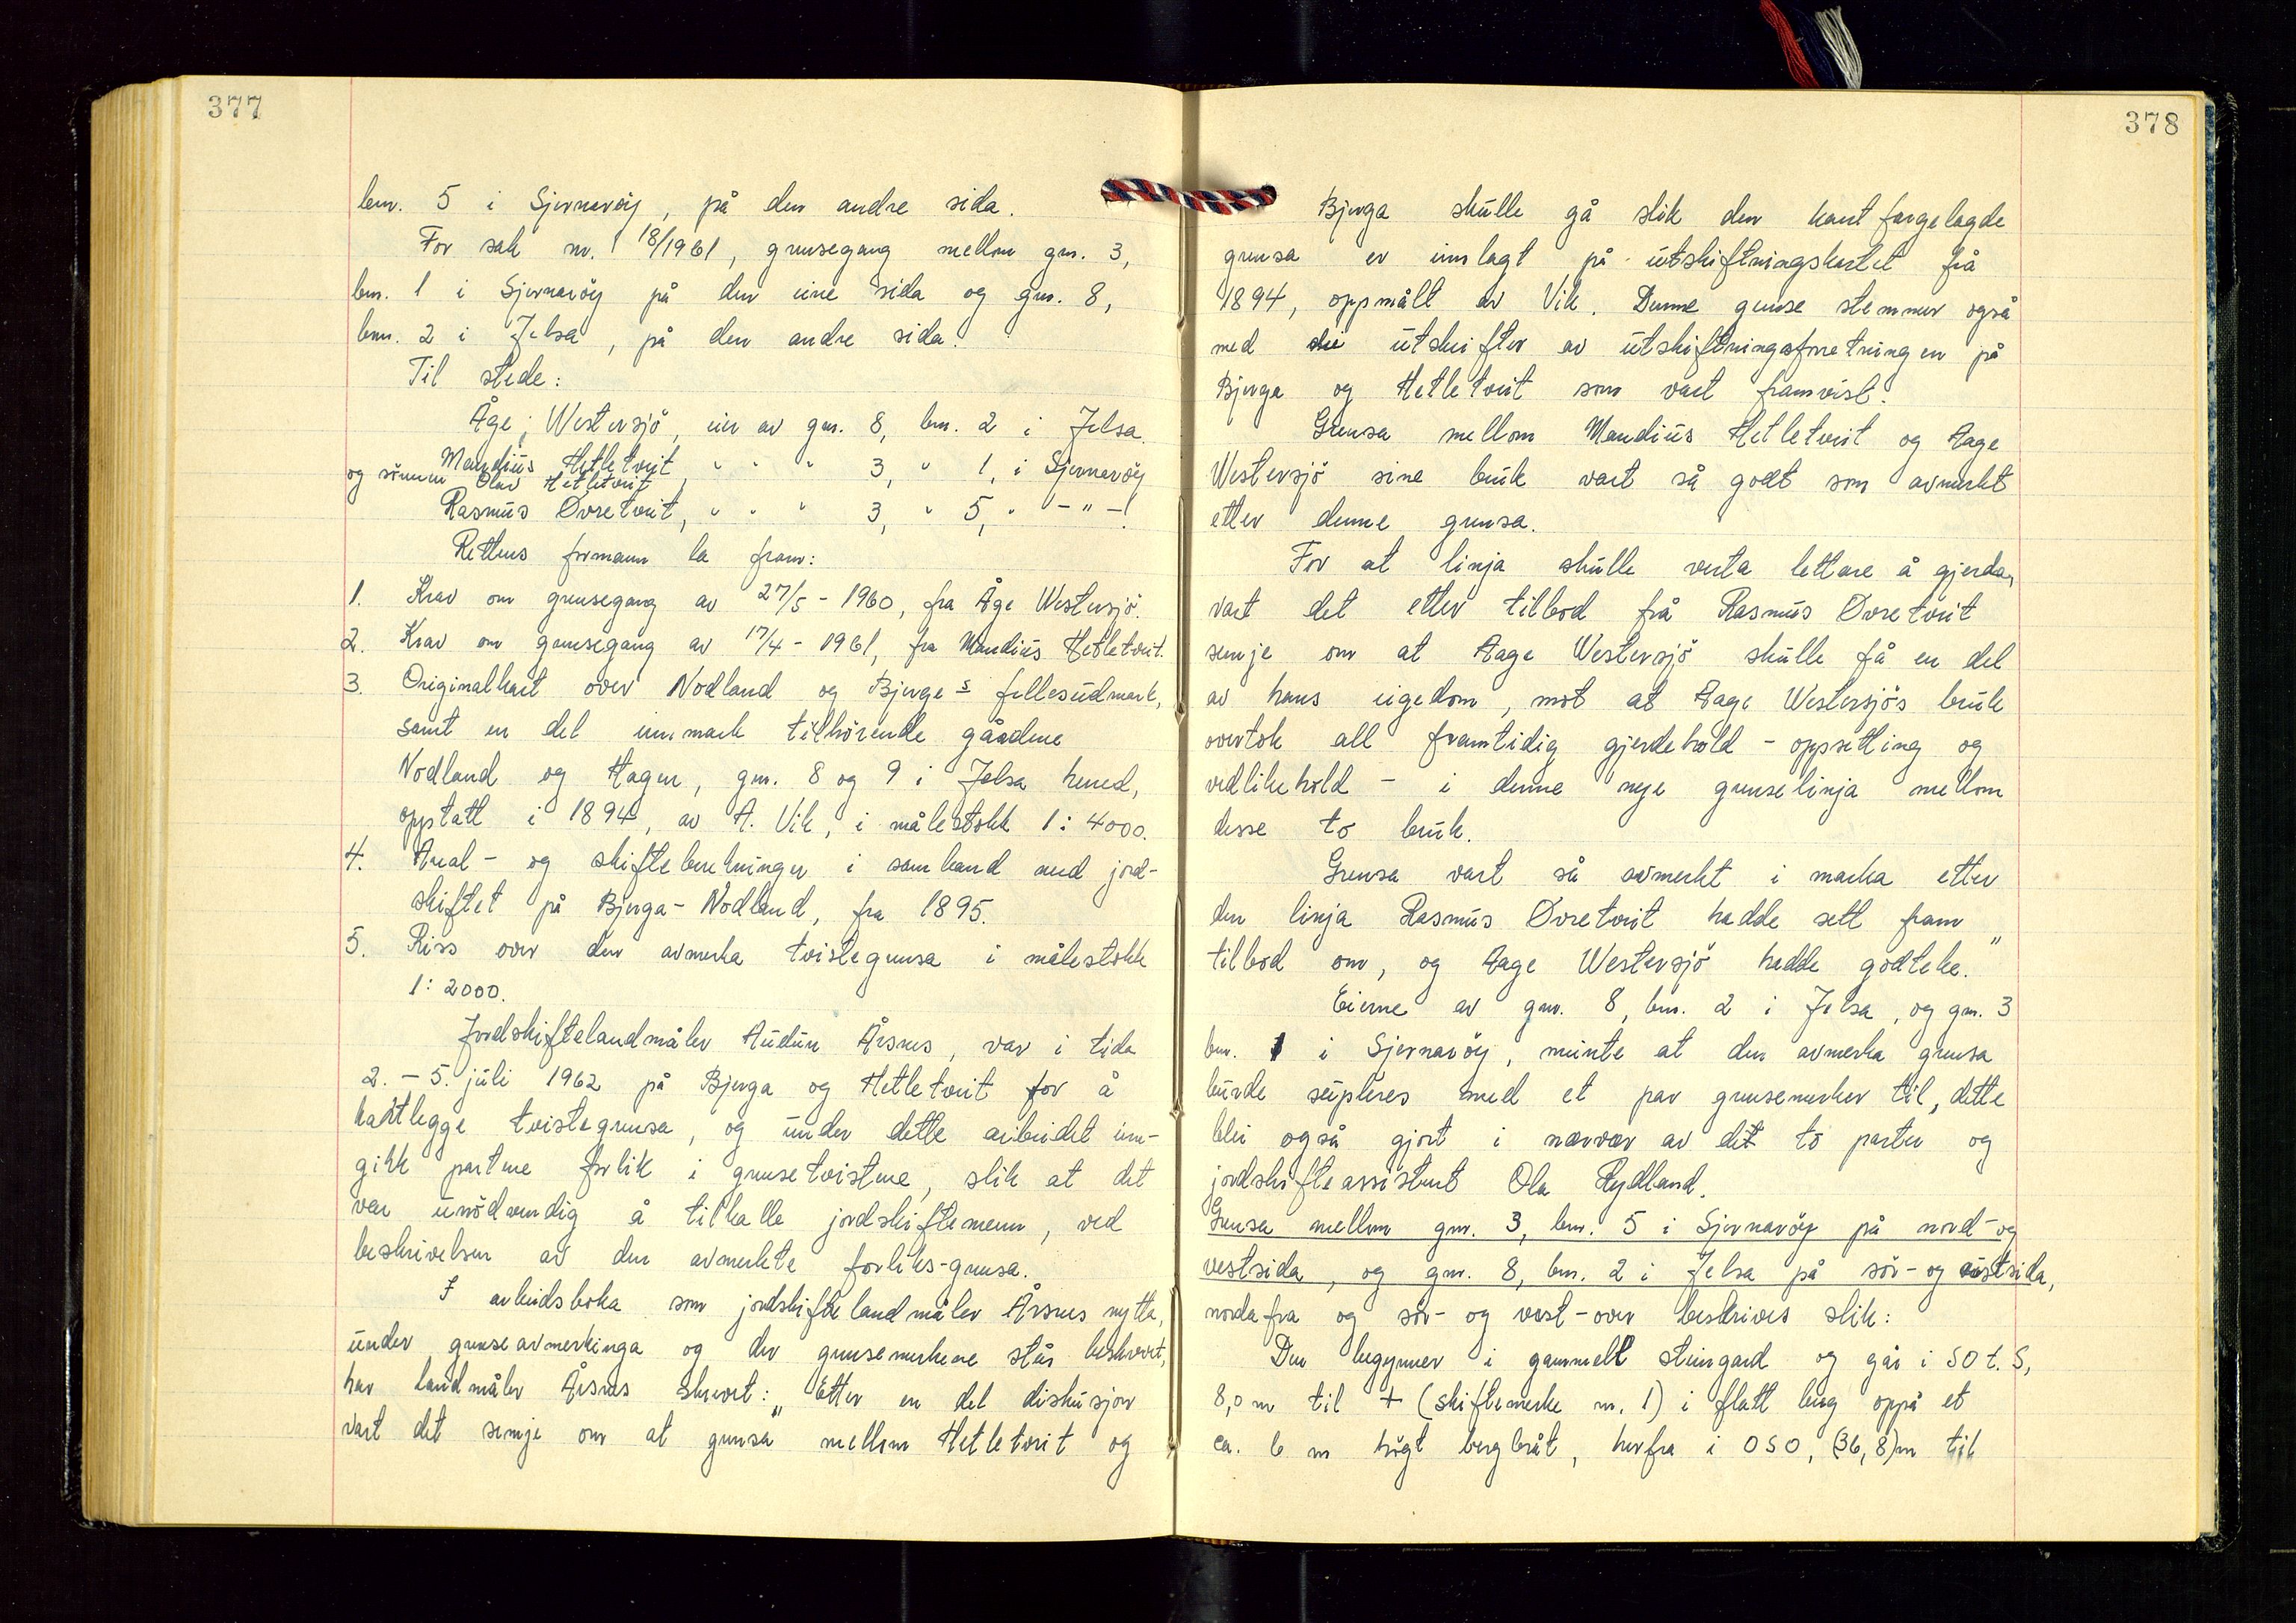 377
bnr. 5 i Sjernaröy, på den andre sida.
For sak nr. 18/1961, grensegang mellom gnr. 3,
bnr. 1 i Sjernaröy på den eine sida og gnr. 8,
bnr. 2 i Jelsa, på den andre sida.
Til stede:
Åge Westersjö, eier av gnr. 8, bnr. 2 i Jelsa.
Mandius Hetletveit, " " " 3, " 1, i Sjernaröy
og sönnen Olav Hetletveit
Rasmus Övretveit, " " " 3, " 5, " -"-!
Rettens formann la fram:
1. Krav om grensegang av 27/5 - 1960, fra Åge Westersjö.
2. Krav om grensegang av 17/4 - 1961, fra Mandius Hetletveit.
3. Originalkart over Nodland og Bjerge s fellesudmark,
samt en del innmark tilhörende gårdene
Nodland og Hagen, gnr. 8 og 9 i Jelsa herred,
opptatt i 1894, av A. Vik, i målestokk 1:4000.
4. Areal- og skifteberekninger i samband med jord-
skiftet på Bjerga-Nodland, fra 1895.
5. Riss over den avmerka tvistegrensa i målestokk
1:2000.
Jordskiftelandmåler Audun Årsnes, var i tida
2. - 5. juli 1962 på Bjerga og Hetletveit for å
kartlegge tvistegrensa, og under dette arbeidet inn-
gikk partene forlik i grensetvistene, slik at det
var unödvendig å tilkalle jordskiftemenn, ved
beskrivelsen av den avmerkte forliks-grensa.
I arbeidsboka som jordskiftelandmåler Årsnes nytta,
under grenseavmerkinga og der grensemerkene står beskrevet,
har landmåler Årsnes skrevet: „Etter en del diskusjon
vart det semje om at grensa mellom Hetletveit og
378
Bjerga skulle gå slik den kant fargelagde
grensa er innlagt på utskiftningskartet frå
1894, oppmålt av Vik. Denne grense stemmer også
med die utskifter av utskiftningsforretningen på
Bjerga og Hetletveit som vart framvist.
Grensa mellom Mandius Hetletveit og Aage
Westersjö sine bruk vart så godt som avmerkt
etter denne grensa.
For at linja skulle verta lettare å gjerda,
vart det etter tilbod frå Rasmus Övretveit
semje om at Aage Westersjö skulle få en del
av hans eigedom, mot at Aage Westersjös bruk
overtok all framtidig gjerdehold - oppsetting og
vedlikehold - i denne nye grenselinja mellom
desse to bruk.
Grensa vart så avmerkt i marka etter
den linja Rasmus Övretveit hadde sett fram
tilbod om, og Aage Westersjö hadde godteke."
Eierne av gnr. 8, bnr. 2 i Jelsa, og gnr. 3
bnr. 1 i Sjernaröy, meinte at den avmerka grensa
burde supleres med et par grensemerker til, dette
blei også gjort i nærvær av det to parter og
jordskifteassistent Ola Rydland.
Grensa mellom gnr. 3, bnr. 5 i Sjernaröy på nord- og
vestsida, og gnr. 8, bnr. 2 i Jelsa på sör- og austsida,
norda fra og sör- og vest-over beskrives slik:
Den begynner i gammelt steingard og går i SO t. S,
8,0 m til + (skiftemerke nr. 1) i flatt berg oppå et
ca. 6 m högt bergbråt, herfra i OSO, (36,8)m til